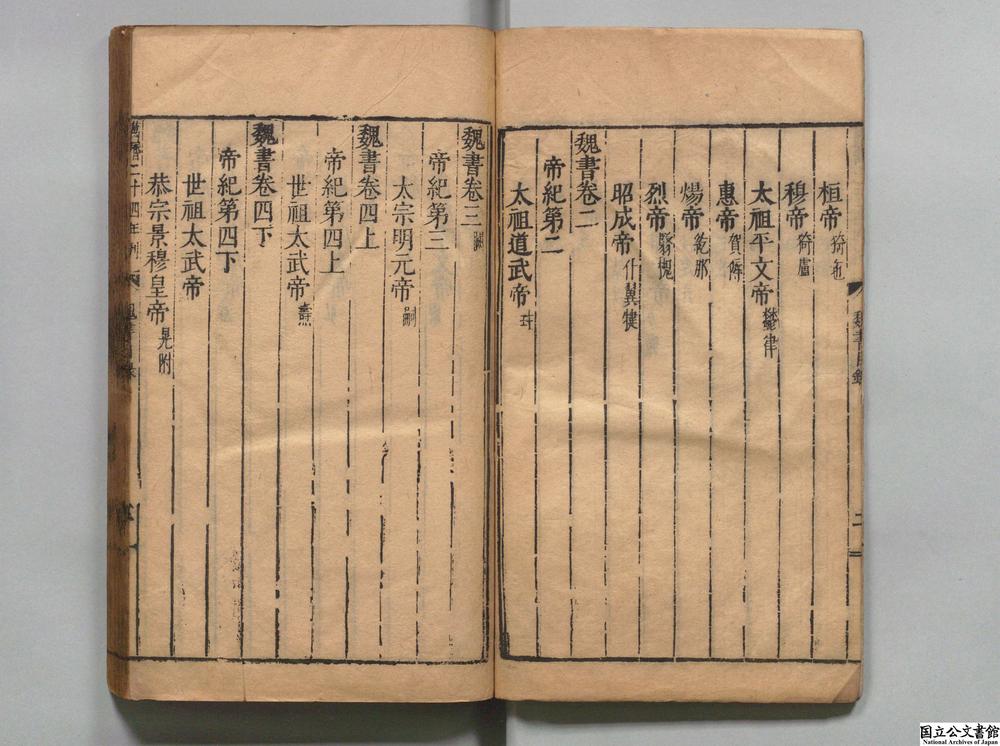 桓帝 猗㐌
穆帝 猗盧
太祖平文帝 鬱律
惠帝 賀傉
煬帝 紇那
烈帝 翳槐
昭成帝 什翼犍
魏書卷二
帝紀第二
太祖道武帝 珪
魏書卷三 闕
帝紀第三
太宗明元帝 嗣
魏書卷四上
帝紀第四上
世祖太武帝 燾
魏書卷四下
帝紀第四下
世祖太武帝
恭宗景穆皇帝 晃附
二十四年刊
国立公文書館
National Archives of Japan